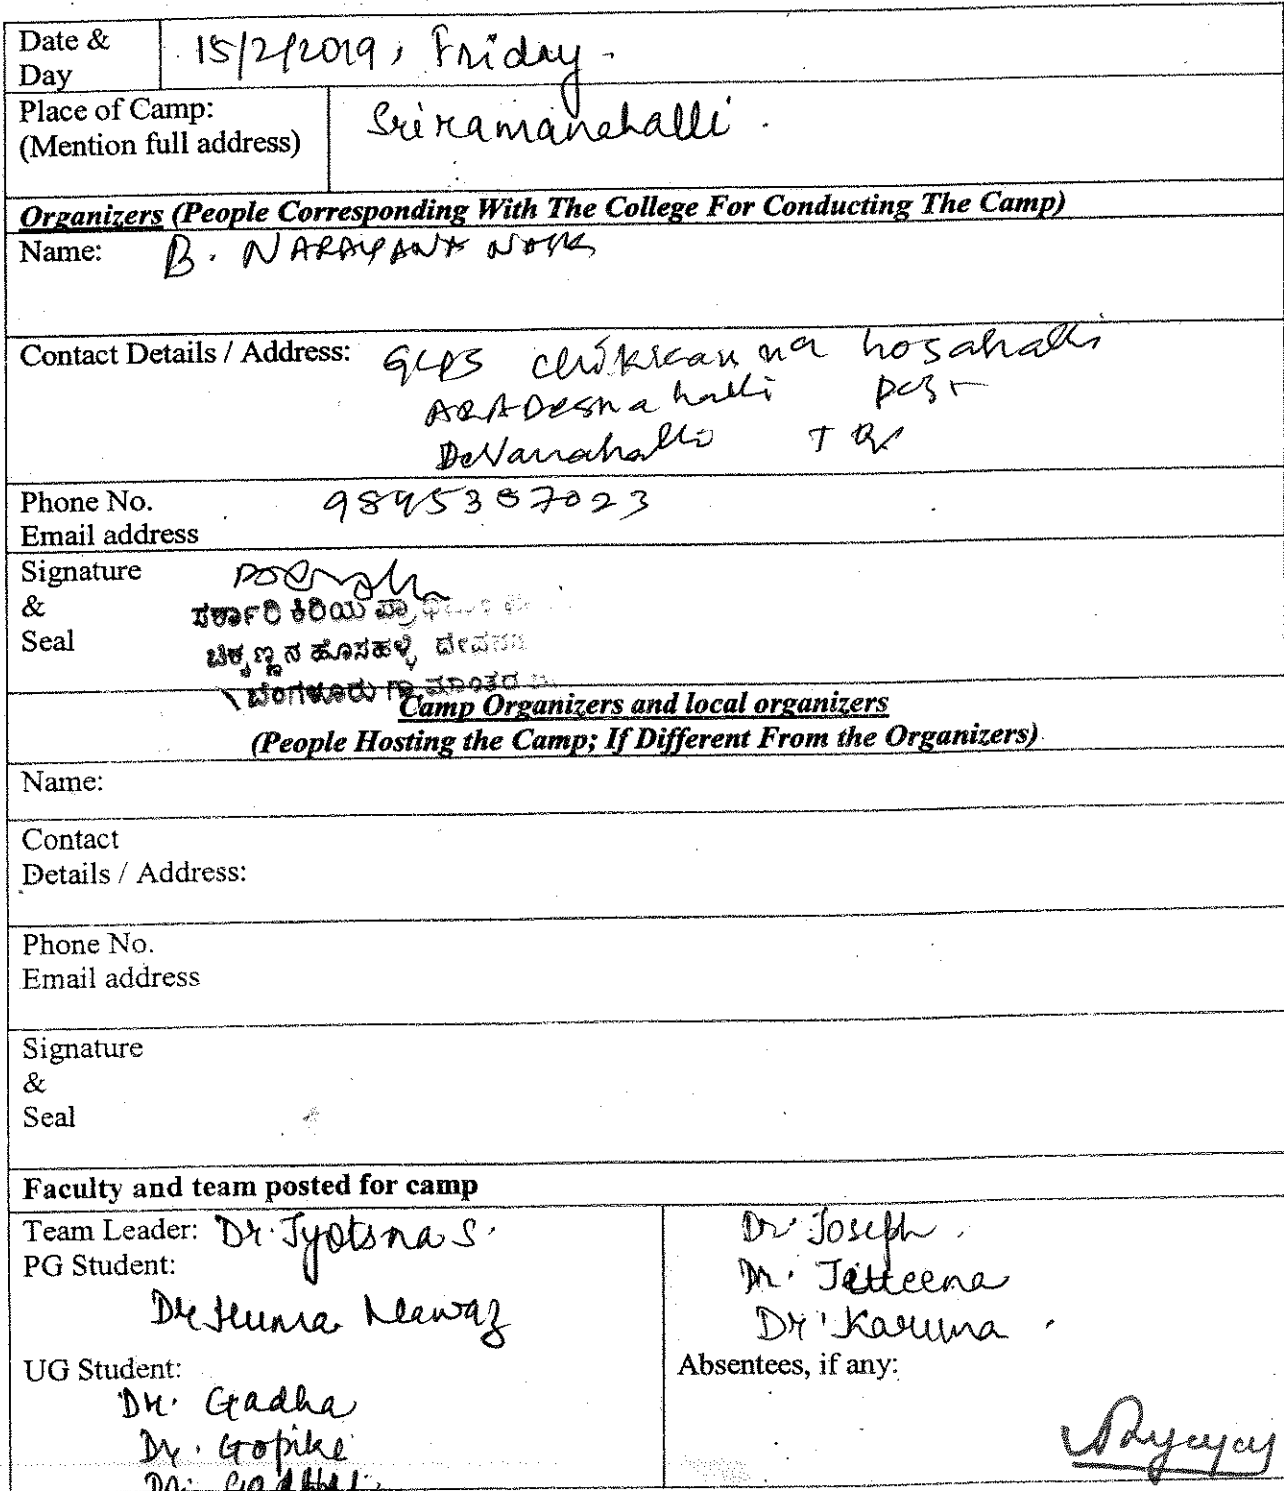 Date & Day 15/2/2019, Friday.
Place of Camp: Sriramanahalli.
(Mention full address)
Organizers (People Corresponding With The College For Conducting The Camp)
Name: B. NARAYANA
Contact Details / Address: GLPS chikkanna hosahalli
ARADESHNahalli post
Devanahalli TQ
Phone No. 9845307023
Email address
Signature
&
Seal
ಸರ್ಕಾರಿ ಕಿರಿಯ
ಚಿಕ್ಕಣ್ಣನ ಹೊಸಹಳ್ಳಿ
ಬೆಂಗಳೂರು ಗ್ರಾಮಾಂತರ
Camp Organizers and local organizers
(People Hosting the Camp; If Different From the Organizers)
Name:
Contact
Details / Address:
Phone No.
Email address
Signature
&
Seal
Faculty and team posted for camp
Team Leader: Dr. Jyotsna S.
PG Student:
Dr Huma Nawaz
UG Student:
Dr. Gadha
Dr. Gopike
Dr.
Dr. Joseph.
Dr.
Dr. Karuna.
Absentees, if any: